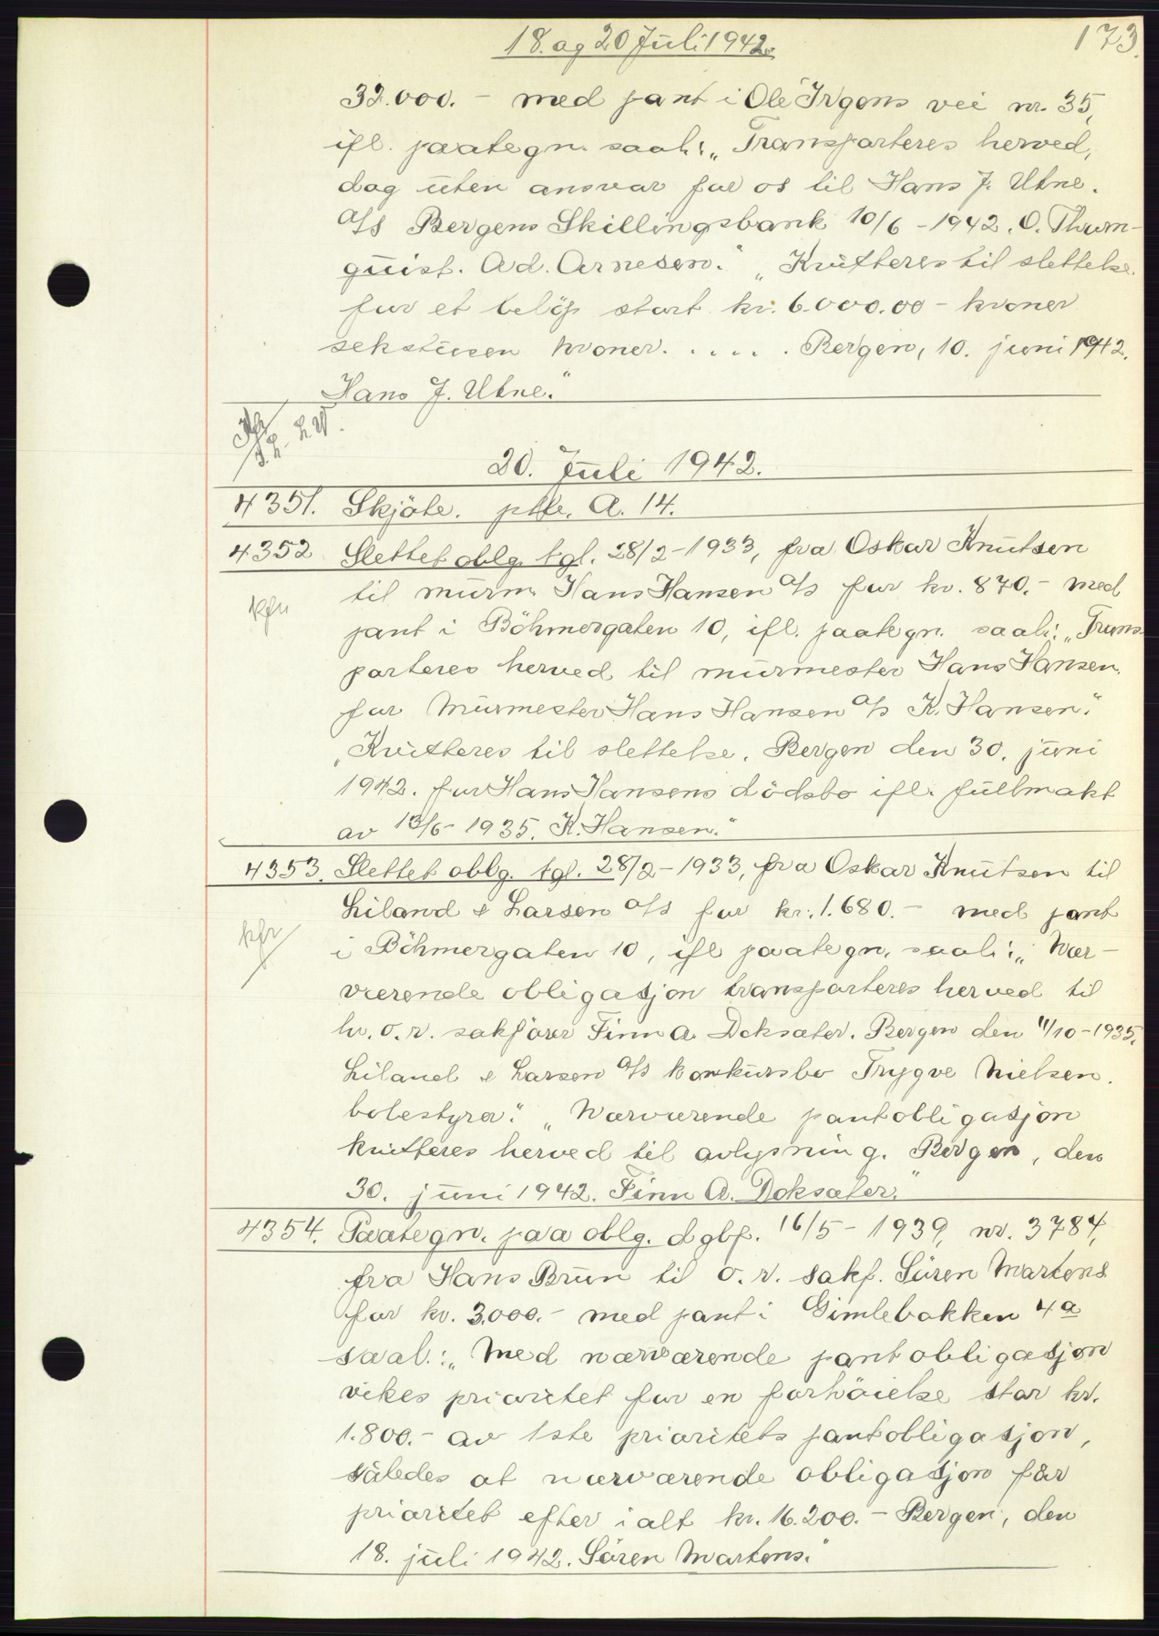 18. og 20 Juli 1942.
173.
32.000.- med pant i Ole Irgens vei nr. 35,
ifl. paategn. saal.: „Transporteres herved,
dog uten ansvar for os til Hans J. Utne.
A/S Bergens Skillingsbank 10/6 - 1942. O. Thurn-
quist. Ad. Arnesen." „Kvitteres til slettelse
for et beløp stort kr. 6.000.00 - kroner
sekstusen kroner. . . . . . Bergen, 10. juni 1942.
Hans J. Utne."
20. Juli 1942.
4351. Skjöte. ptbr. A. 14.
4352 Slettet oblg. tgl. 28/2 - 1933, fra Oskar Knutsen
til murm. Hans Hansen A/S for kr. 870.- med
kfr
pant i Böhmergaten 10, ifl. paategn. saal.: „Trans-
porteres herved til murmester Hans Hansen.
for Murmester Hans Hansen A/S K. Hansen."
„Kvitteres til slettelse. Bergen den 30. juni
1942. for Hans Hansens dödsbo ifl. fullmakt
av 13/6 - 1935. K. Hansen."
4353. Slettet oblg. tgl. 28/2 - 1933, fra Oskar Knutsen til
Liland & Larsen A/S for kr. 1.680.- med pant
kfr
i Böhmergaten 10, ifl paategn. saal.: „Nær-
værende obligasjon transporteres herved til
hr. o. r. sakförer Finn A. Doksæter. Bergen den 11/10 - 1935.
Liland & Larsen A/S konkursbo Trygve Nielsen.
bobestyrer." „Nærværende pantobligasjon
kvitteres herved til avlysning. Bergen, den
30. juni 1942. Finn A. Doksæter."
4354. Paategn. paa oblg. dgbf. 16/5 - 1939, nr. 3784,
fra Hans Brun til o. r. sakf. Sören Martens
for kr. 3.000.- med pant i Gimlebakken 4a
saal.: „Med nærværende pantobligasjon
vikes prioritet for en forhöielse stor kr.
1.800.- av 1ste prioritets pantobligasjon,
således at nærværende obligasjon får
prioritet efter i alt kr. 16.200.- Bergen, den
18. juli 1942. Sören Martens."